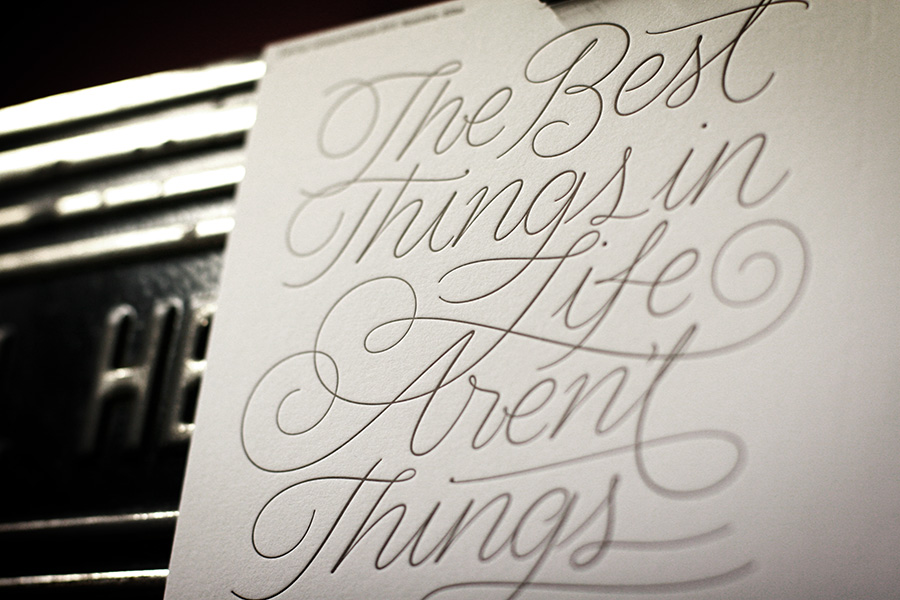 The Best
Things in
Life
Aren't
Things
HE